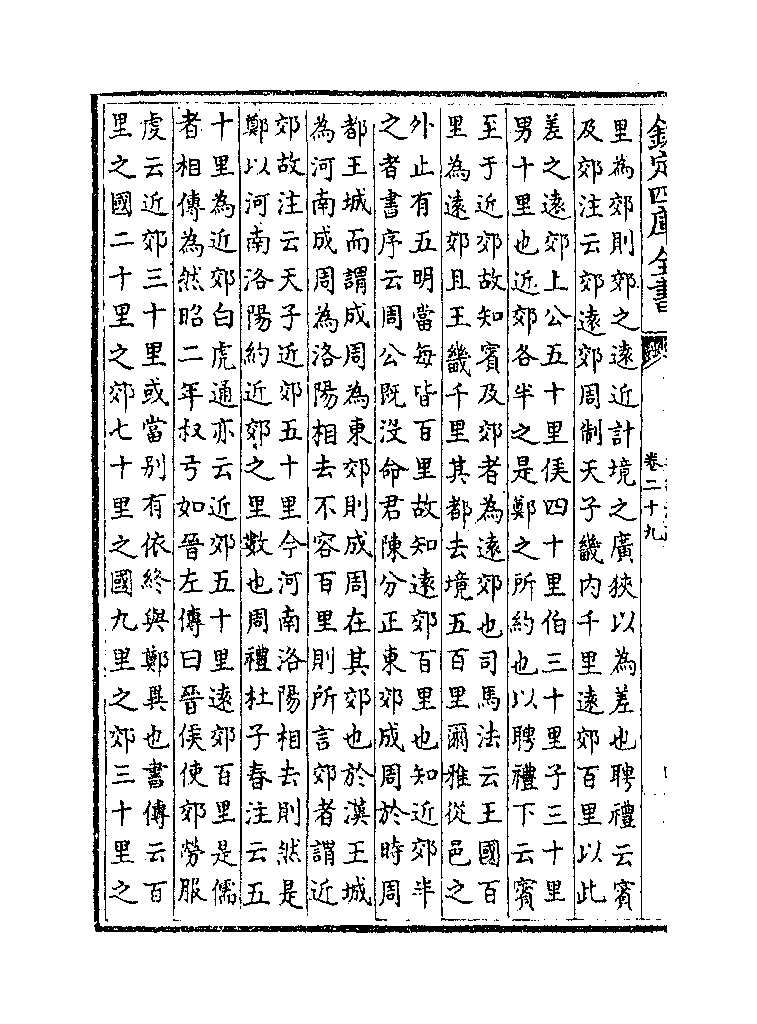 欽定四庫全書
卷二十九
里為郊則郊之遠近計境之廣狹以為差也聘禮云賓
及郊注云郊遠郊周制天子畿内千里遠郊百里以此
差之遠郊上公五十里侯四十里伯三十里子三十里
男十里也近郊各半之是鄭之所約也以聘禮下云賓
至于近郊故知賓及郊者為遠郊也司馬法云王國百
里為遠郊且王畿千里其都去境五百里爾雅從邑之
外止有五明當每皆百里故知遠郊百里也知近郊半
之者書序云周公既没命君陳分正東郊成周於時周
都王城而謂成周為東郊則成周在其郊也於漢王城
為河南成周為洛陽相去不容百里則所言郊者謂近
郊故注云天子近郊五十里今河南洛陽相去則然是
鄭以河南洛陽約近郊之里數也周禮杜子春注云五
十里為近郊白虎通亦云近郊五十里遠郊百里是儒
者相傳為然昭二年叔弓如晉左傳曰晉侯使郊勞服
虔云近郊三十里或當别有依終與鄭異也書傳云百
里之國二十里之郊七十里之國九里之郊三十里之